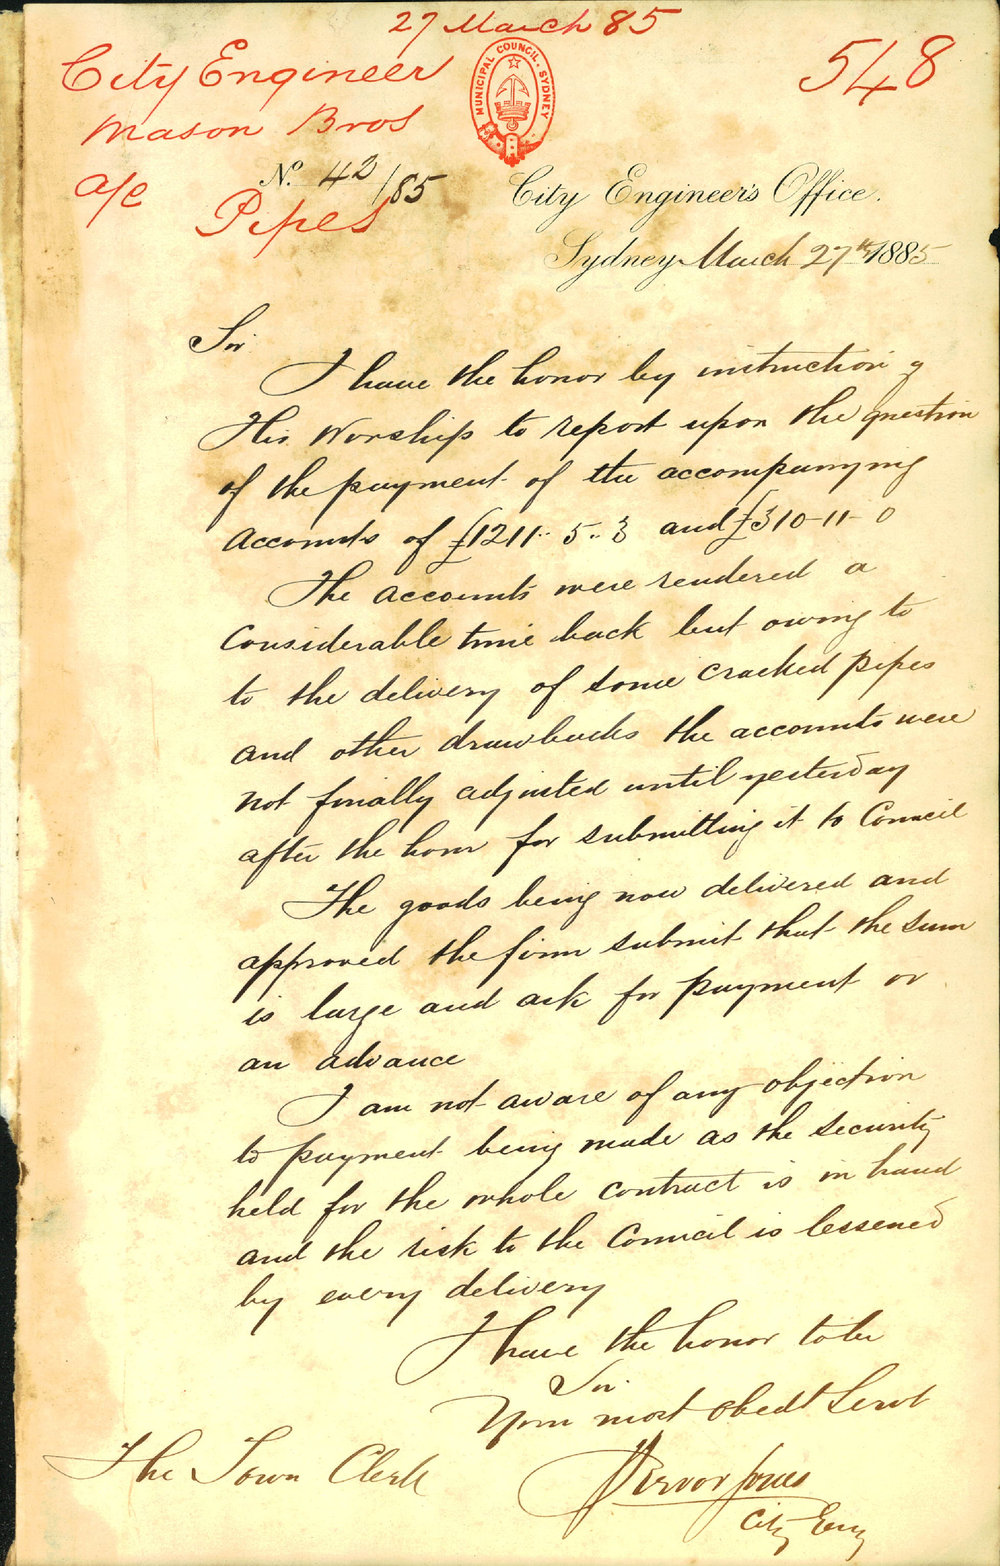 27 March 85
City Engineer
548
Mason Bros
MUNICIPAL COUNCIL. SYDNEY
a/c
No. 42/85
Pipes
City Engineer's Office.
Sydney March 27th 1885
Sir
I have the honor by instruction of
His Worship to report upon the question
of the payment of the accompanying
accounts of £1211.. 5.. 3 and £310-11-0
The accounts were rendered a
Considerable time back but owing to
to the delivery of some cracked pipes
and other drawbacks the accounts were
not finally adjusted until yesterday
after the hour for submitting it to Council
The goods being now delivered and
approved the firm submit that the sum
is large and ask for payment or
an advance
I am not aware of any objection
to payment being made as the security
held for the whole contract is in hand
and the risk to the Council is lessened
by every delivery
I have the honor to be
Sir
Your most obedt Servt
The Town Clerk
Trevor Jones
City Eng